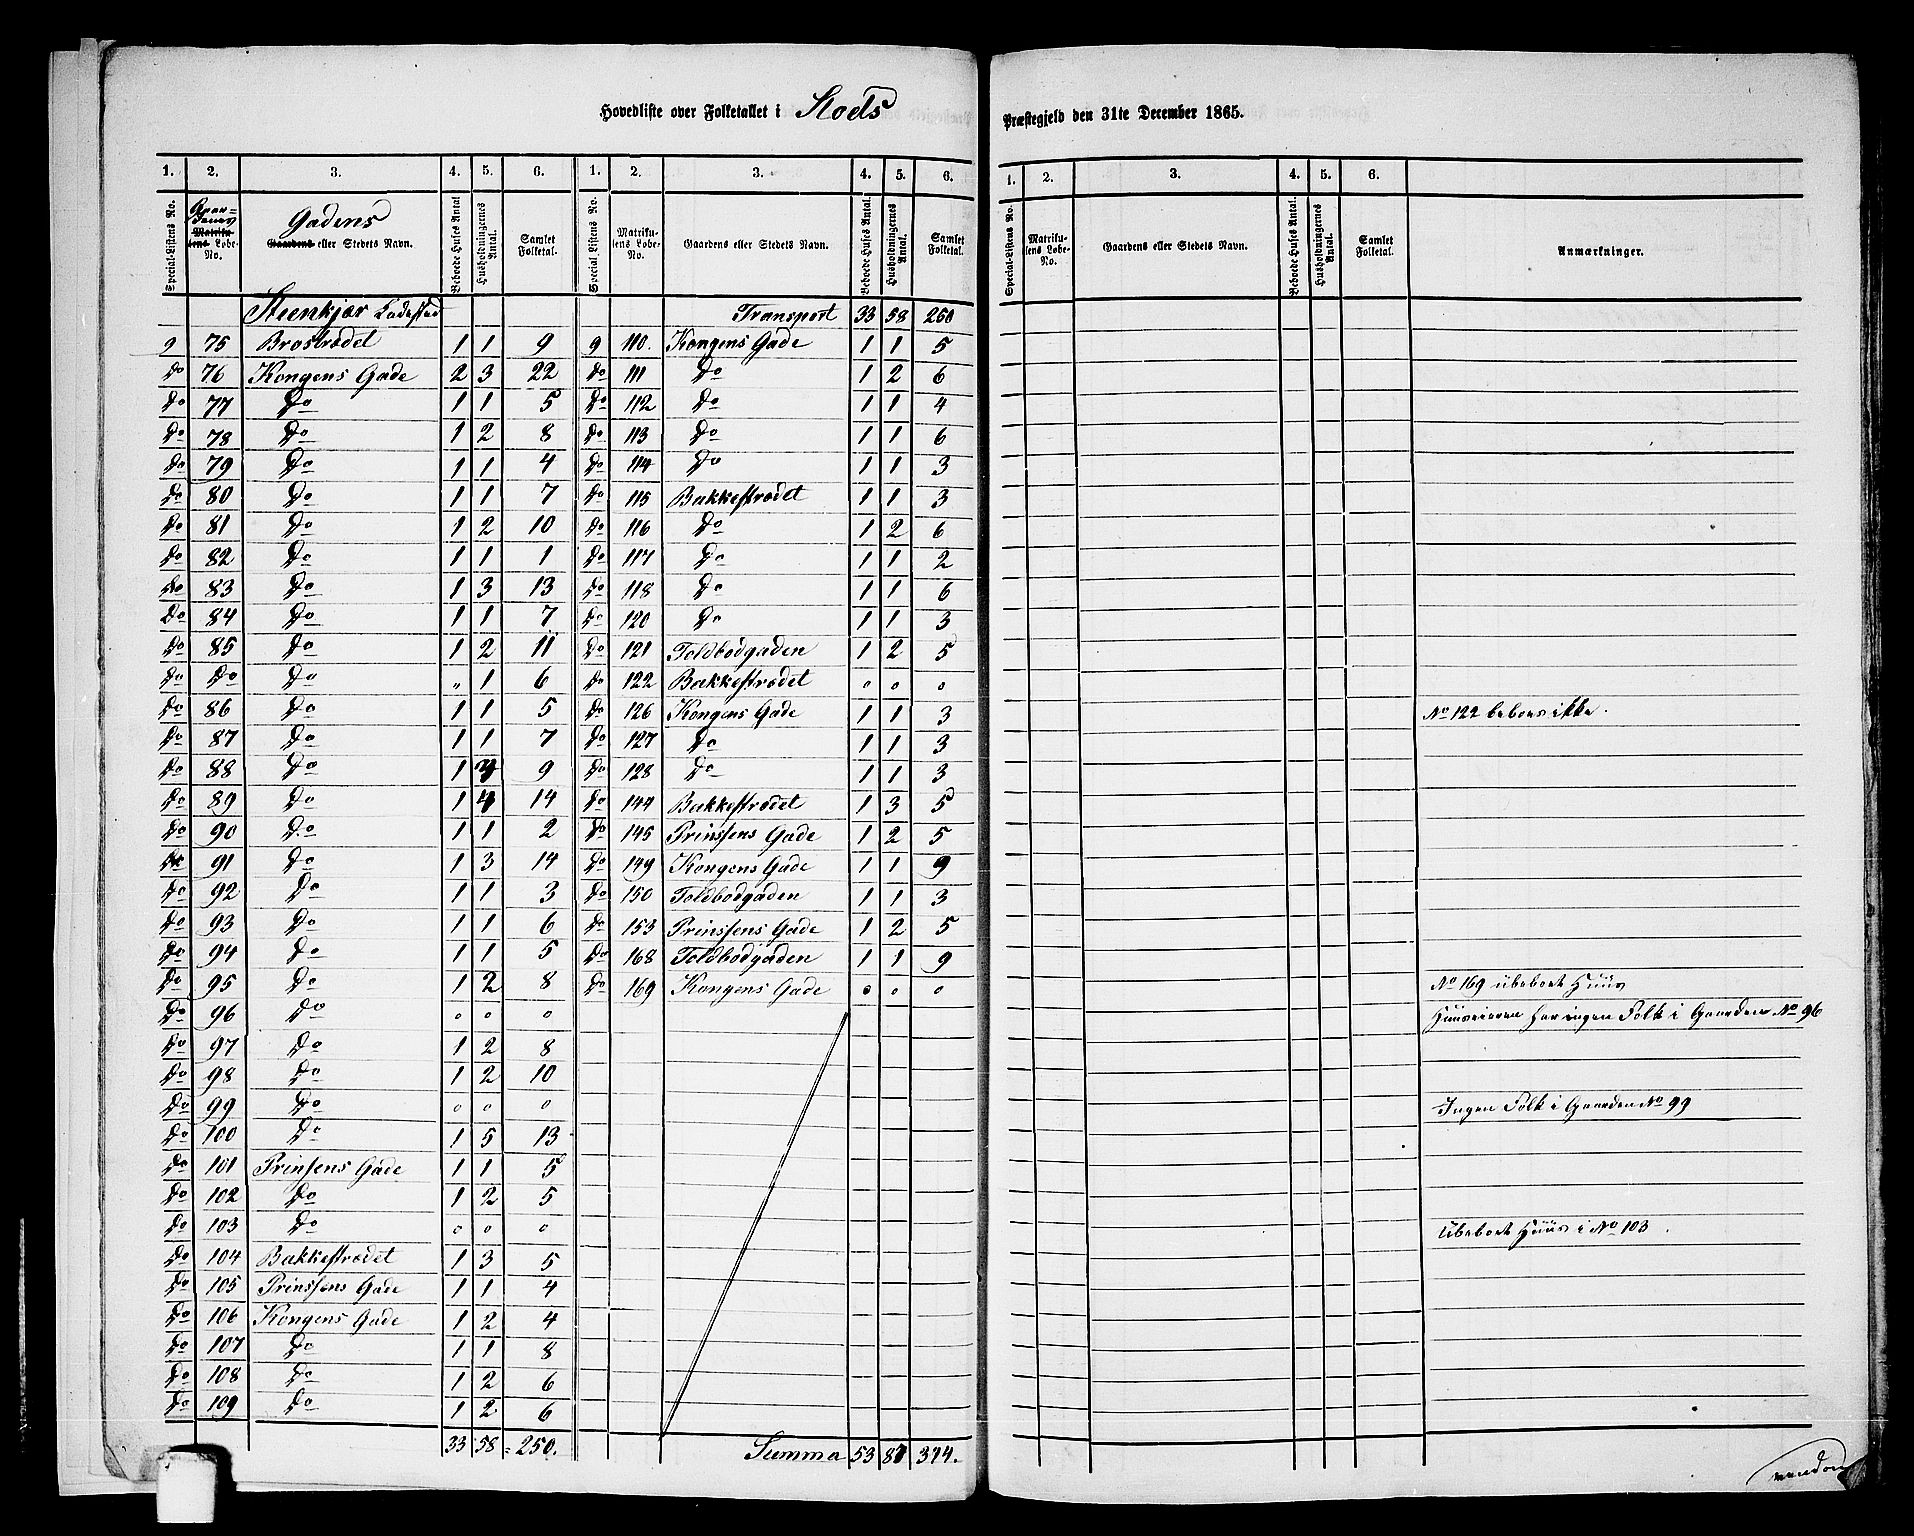 Hovedliste over Folketallet i Stods Præstegjeld den 31te December 1865.
1. 2. 3. 4. 5. 6. 1. 2. 3. 4. 5. 6.
Special-Listens No. Matrikulens Løbe-No. Gadens Gaardens eller Stedets Navn. Beboede Huses Antal Husholdningernes Antal. Samlet Folketal. Special-Listens No. Matrikulens Løbe-No. Gaardens eller Stedets Navn. Beboede Huses Antal. Husholdningernes Antal. Samlet Folketal.
Steenkjær Ladested Transport 33 58 250
9 75 Brostrædet 1 1 9 9 110. Kongens Gade 1 1 5
Do 76 Kongens Gade 2 3 22 Do 111 Do 1 2 6
Do 77 Do 1 1 5 Do 112 Do 1 1 4
Do 78 Do 1 2 8 Do 113 Do 1 1 6
Do 79 Do 1 1 4 Do 114 Do 1 1 3
Do 80 Do 1 1 7 Do 115 Bakkestrædet 1 1 3
Do 81 Do 1 2 10 Do 116 Do 1 2 6
Do 82 Do 1 1 1 Do 117 Do 1 1 2
Do 83 Do 1 3 13 Do 118 Do 1 1 6
Do 84 Do 1 1 7 Do 120 Do 1 1 3
Do 85 Do 1 2 11 Do 121 Toldbodgaden 1 2 5
Do Do Do " 1 6 Do 122 Bakkestrædet 0 0 0
Do 86 Do 1 1 5 Do 126 Kongens Gade 1 1 3
Do 87 Do 1 1 7 Do 127 Do 1 1 3
Do 88 Do 1 9 Do 128 Do 1 1 3
Do 89 Do 1 4 14 Do 144 Bakkestrædet 1 3 5
Do 90 Do 1 1 2 Do 145 Prinsens Gade 1 2 5
Do 91 Do 1 3 14 Do 149 Kongens Gade 1 1 9
Do 92 Do 1 1 3 Do 150 Toldbodgaden 1 1 3
Do 93 Do 1 1 6 Do 153 Prinsens Gade 1 2 5
Do 94 Do 1 1 5 Do 168 Toldbodgaden 1 1 9
Do 95 Do 1 2 8 Do 169 Kongens Gade 0 0 0
Do 96 Do 0 0 0
Do 97 Do 1 2 8
Do 98 Do 1 2 10
Do 99 Do 0 0 0
Do 100 Do 1 5 13
Do 101 Prinsens Gade 1 1 5
Do 102 Do 1 2 5
Do 103 Do 0 0 0
Do 104 Bakkestrædet 1 3 5
Do 105 Prinsens Gade 1 1 4
Do 106 Kongens Gade 1 2 4
Do 107 Do 1 1 8
Do 108 Do 1 2 6
Do 109 Do 1 2 6
33 58 = 250. Summa 53 87 344.
1. 2. 3. 4. 5. 6.
Special-Listens No. Matrikulens Løbe-No. Gaardens eller Stedets Navn. Beboede Huses Antal. Husholdningernes Antal. Samlet Folketal. Anmærkninger.
No 122 beboes ikke.
No 169 ubeboet Huus
Huuseieren har ingen Folk i Gaarden No 96
Ingen Folk i Gaarden No 99
Ubeboet Huus i No 103.